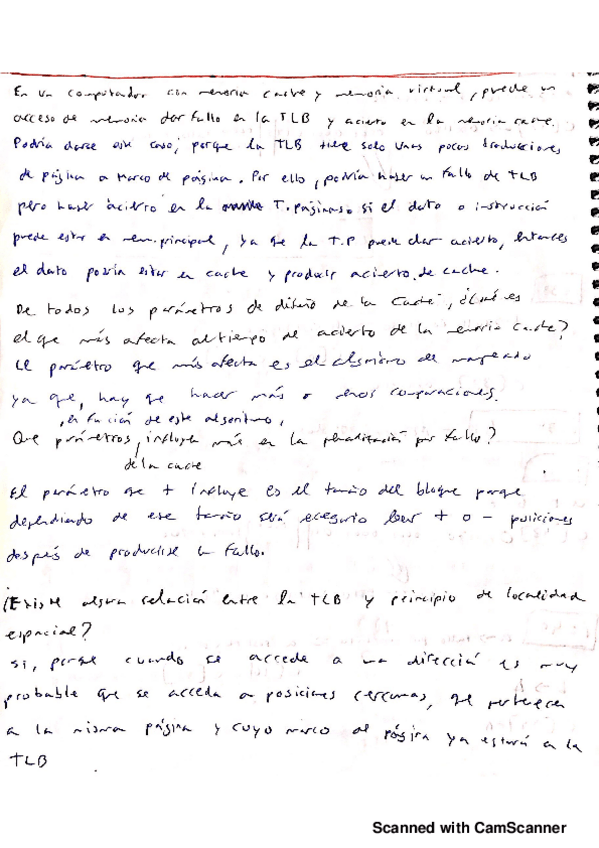 En un computador con memoria cache y memoria virtual, puede un
acceso de memoria dar fallo en la TLB y acierto en la memoria cache.
Podría darse este caso, porque la TLB tiene solo unas pocas traducciones
de página a marco de página. Por ello, podría haber un fallo de TLB
pero haber acierto en la T.páginas. si el dato o instrucción
puede estar en mem.principal, ya que la T.P puede dar acierto, entonces
el dato podría estar en cache y producir acierto de cache.
De todos los parámetros de diseño de la cache, ¿Cuál es
el que más afecta al tiempo de acierto de la memoria cache?
El parámetro que más afecta es el algoritmo de mapeado
ya que, hay que hacer más o menos comparaciones
, en función de este algoritmo.
Que parámetros, influyen más en la penalización por fallo?
de la cache
El parámetro que + influye es el tamaño del bloque porque
dependiendo de ese tamaño será necesario leer + o - posiciones
después de producirse un fallo.
¿Existe alguna relación entre la TLB y principio de localidad
espacial?
Si, porque cuando se accede a una dirección es muy
probable que se acceda a posiciones cercanas, que pertenecen
a la misma página y cuyo marco de página ya estará en la
TLB
Scanned with CamScanner